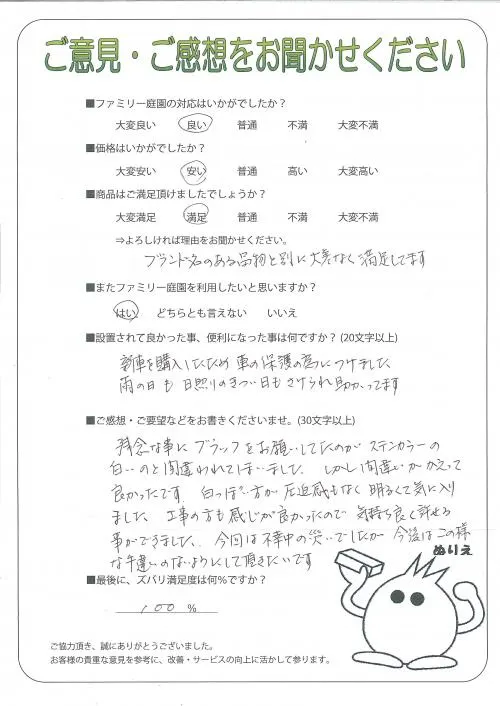 ご意見・ご感想をお聞かせください
■ファミリー庭園の対応はいかがでしたか？
大変良い 良い 普通 不満 大変不満
■価格はいかがでしたか？
大変安い 安い 普通 高い 大変高い
■商品はご満足頂けましたでしょうか？
大変満足 満足 普通 不満 大変不満
⇒よろしければ理由をお聞かせください。
ブランド名のある品物と別に大差なく満足してます
■またファミリー庭園を利用したいと思いますか？
はい どちらとも言えない いいえ
■設置されて良かった事、便利になった事は何ですか？(20文字以上)
新車を購入したため 車の保護の為につけました
雨の日も 日照りのきつい日もさけられ助かってます
■ご感想・ご要望などをお書きくださいませ。(30文字以上)
残念な事に ブラックをお願いしてたのが ステンカラーの
白いのと間違われてしまいました しかし間違いがかえって
良かったです 白っぽい方が圧迫感もなく明るくて気に入り
ました 工事の方も感じが良かったので 気持ち良く許せる
事ができました、今回は不幸中の災いでしたが 今後はこの様
な手違いのないようにして頂きたいです
ぬりえ
■最後に、ズバリ満足度は何%ですか？
100 %
ご協力頂き、誠にありがとうございました。
お客様の貴重な意見を参考に、改善・サービスの向上に活かして参ります。